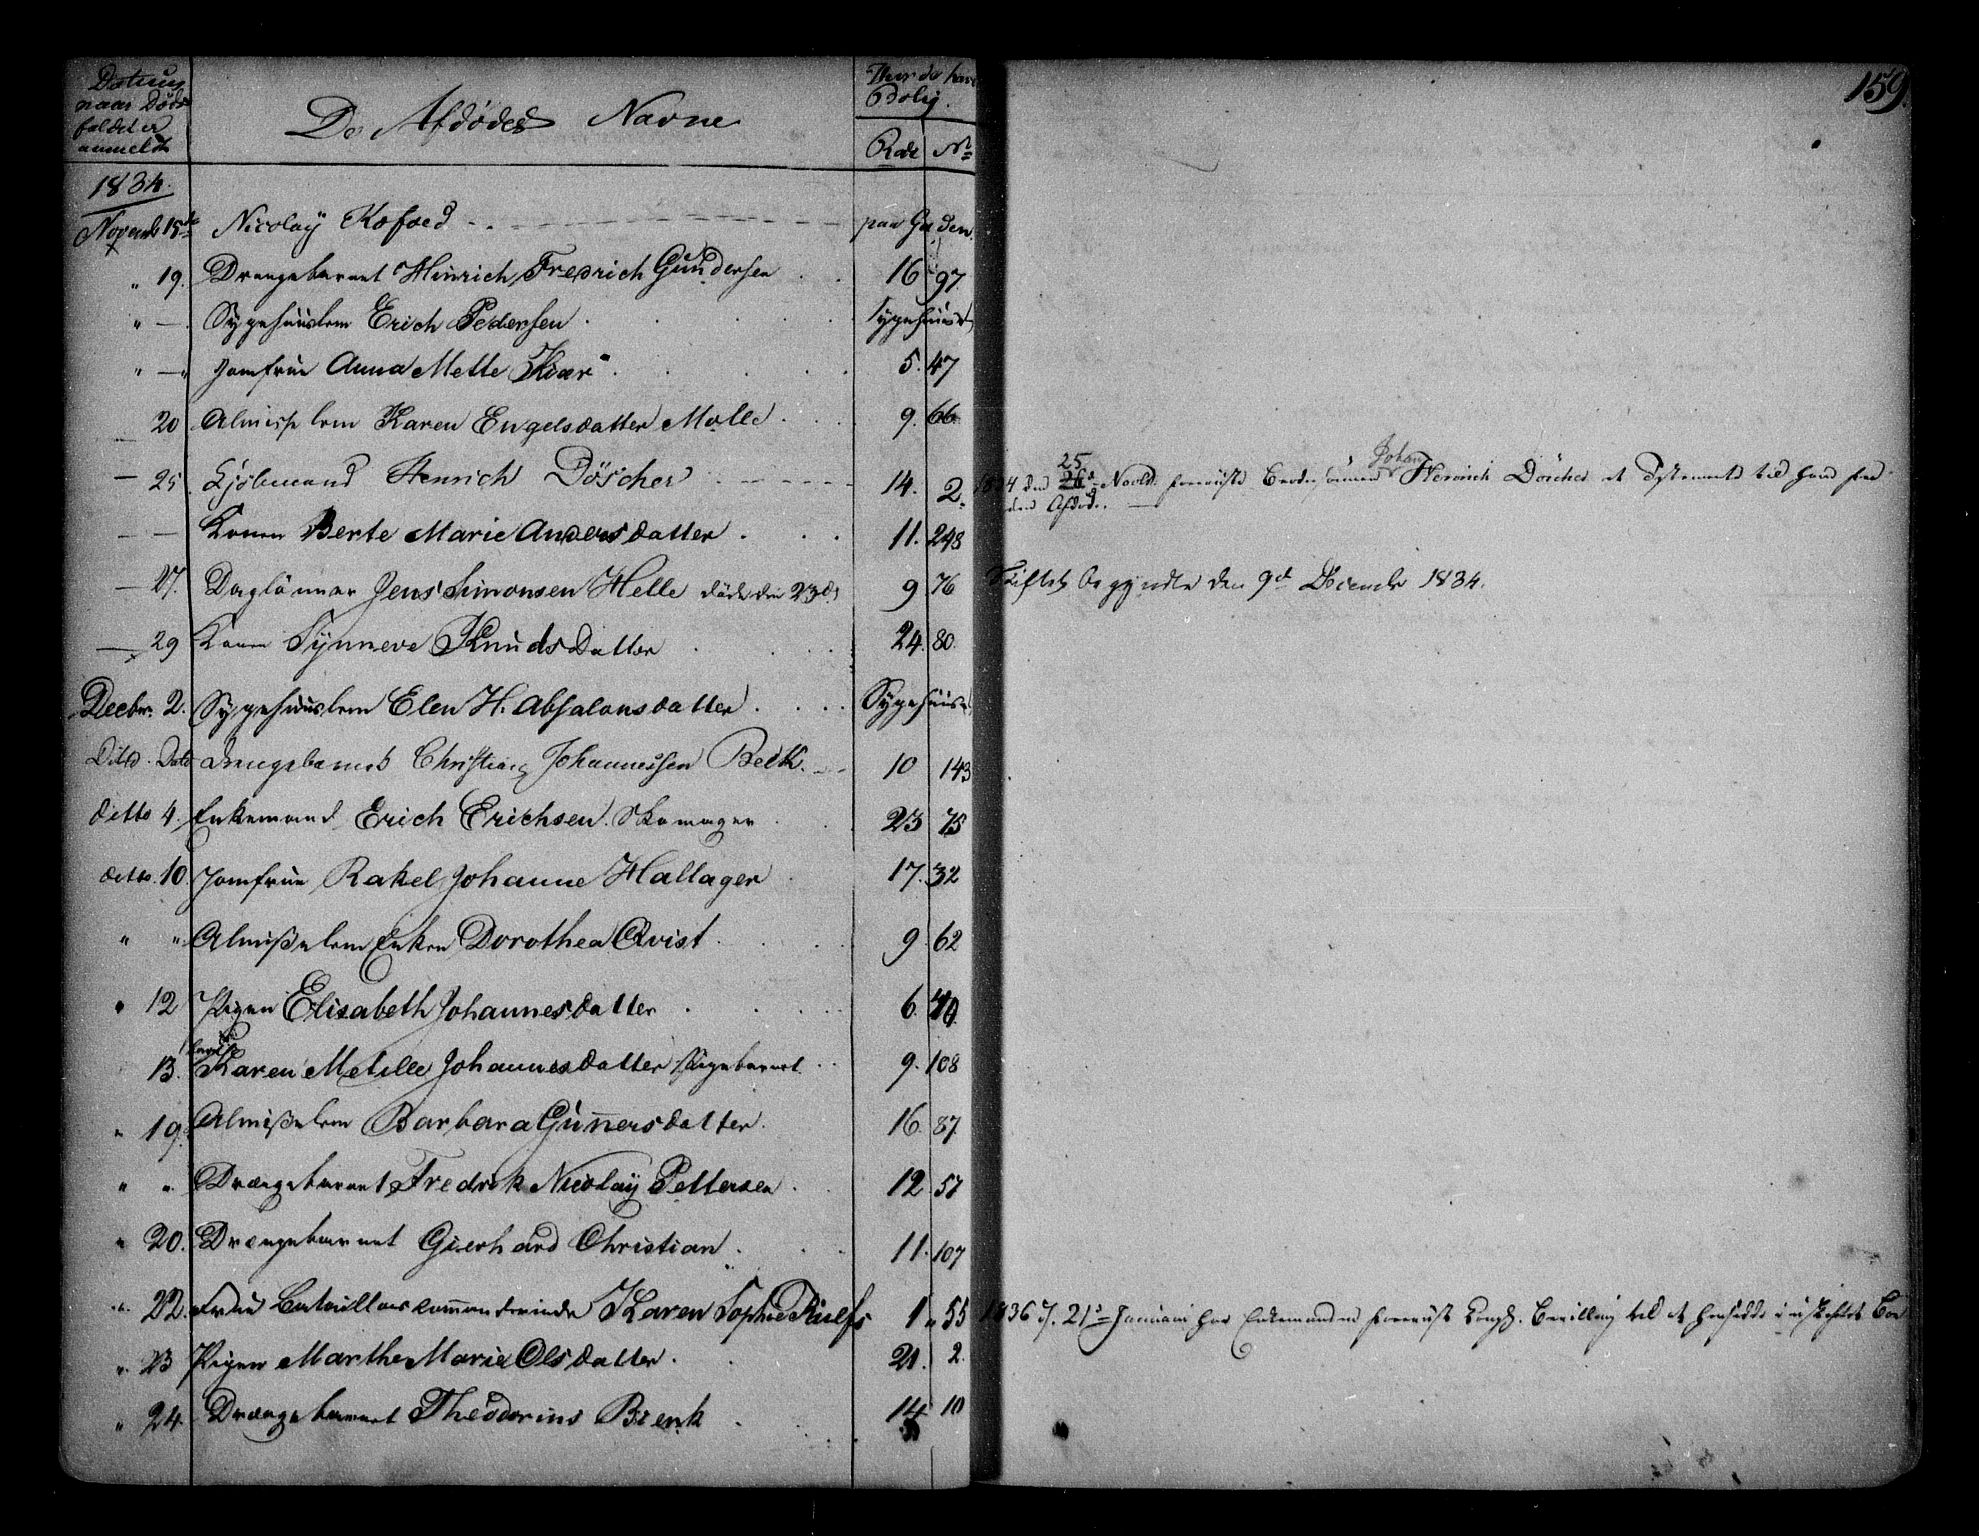 159.
Datum
naar Døds
faldet er
anmeldt
De Afdødes Navne
Hvor de have
Bolig.
Rode No
1834.
Novemb 15de Nicolaÿ Kofoed paa Gaden.
" 19. Drengebarnet Hinrich Fredrich Gundersen 16 97.
" — Sygehuuslem Erich Pedersen Sygehuuset
" — Jomfrue Anna Mette Kiær 5. 47
20 Almisselem Karen Engelsdatter Molle 9. 66
— 25. Kjøbmand Henrich Döscher 14. 2. 1834 den 25 Novbr. foreviiste Broder sönnen Johan Henrich Döscher et Testamente
den Afdøde.
— — Konen Berte Marie Andersdatter 11. 248
— 27. Daglönner Jens Simonsen Helle døde den 23de 9 76 Skiftet begyndte den 9de Decembr 1834.
— 29 Konen Synneve Knudsdatter 24. 80.
Decbr. 2. Sygehuuslem Elen H. Absalonsdatter Sygehuuset
Ditto. Dato Drengebarnet Christian Johannessen Beck. 10 143
ditto 4. Enkemand Erich Erichsen. Skomager 23 75
ditto. 10. Jomfrue Rakel Johanne Hallager 17. 32
" " Almisselem Enken Dorothea Qvist 9. 62
" 12 Pigen Elisabeth Johannesdatter 6. 40.
13. Karen Metille Johannesdatter Pigebarnet 9. 108
" 19. Almisselem Barbara Guñersdatter. 16. 87.
" " Drængebarnet Fredrik Nicolaÿ Pettersen 12 57
" 20. Drængebarnet Gierhard Christian 11. 107
" 22. Frue Bataillons Com̃andeurinde Karen Sophie Rielfs 1 " 55 1836 d. 21de Januari har Enkemanden foreviist Kongl. Bevilling til at hensidde i uskiftet Boe
" 23 Pigen Marthe Marie Olsdatter. 21. 2.
" 24. Drængebarnet Theodorius Bierk 14 10